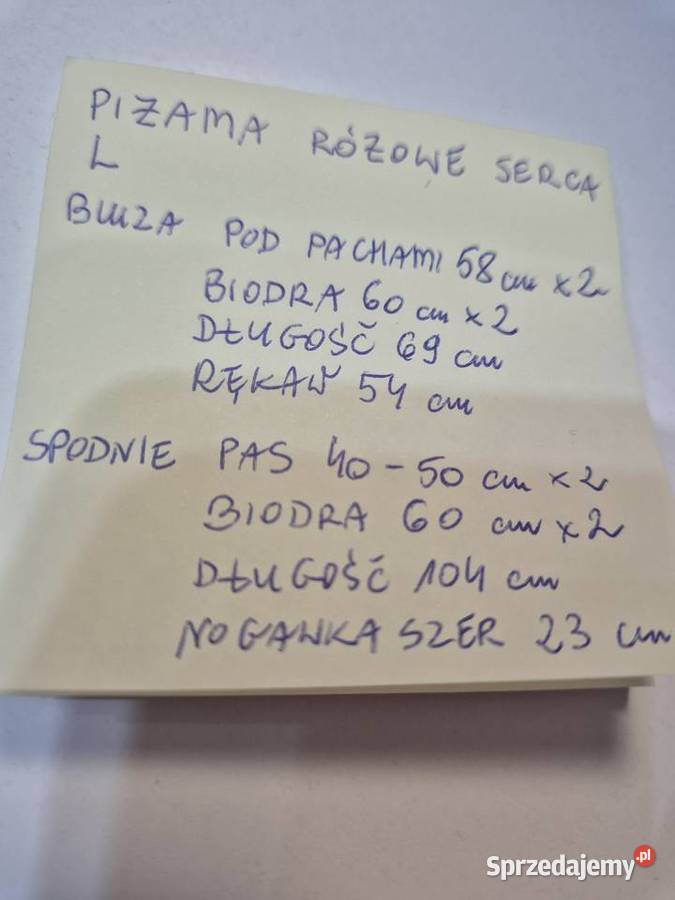 PIŻAMA RÓŻOWE SERCA
L
BLUZA POD PACHAMI 58 cm x 2
BIODRA 60 cm x 2
DŁUGOŚĆ 69 cm
RĘKAW 54 cm
SPODNIE PAS 40-50 cm x 2
BIODRA 60 cm x 2
DŁUGOŚĆ 104 cm
NOGAWKA SZER 23 cm
Sprzedajemy.pl